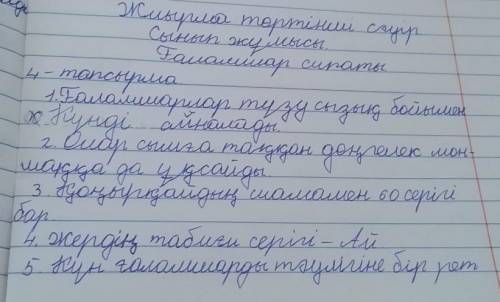 Жиырма төртінші сәуір
Сынып жұмысы.
Ғаламшар сипаты
4-тапсырма
1. Ғаламшарлар түзу сызық бойымен
Күнді айналады.
2. Олар сымға таққан дөңгелек мон-
шаққа да ұқсайды.
3. Қоңырқайдың шамамен 60 серігі
бар
4. Жердің табиғи серігі – Ай
5. Күн ғаламшарды тәулігіне бір рет